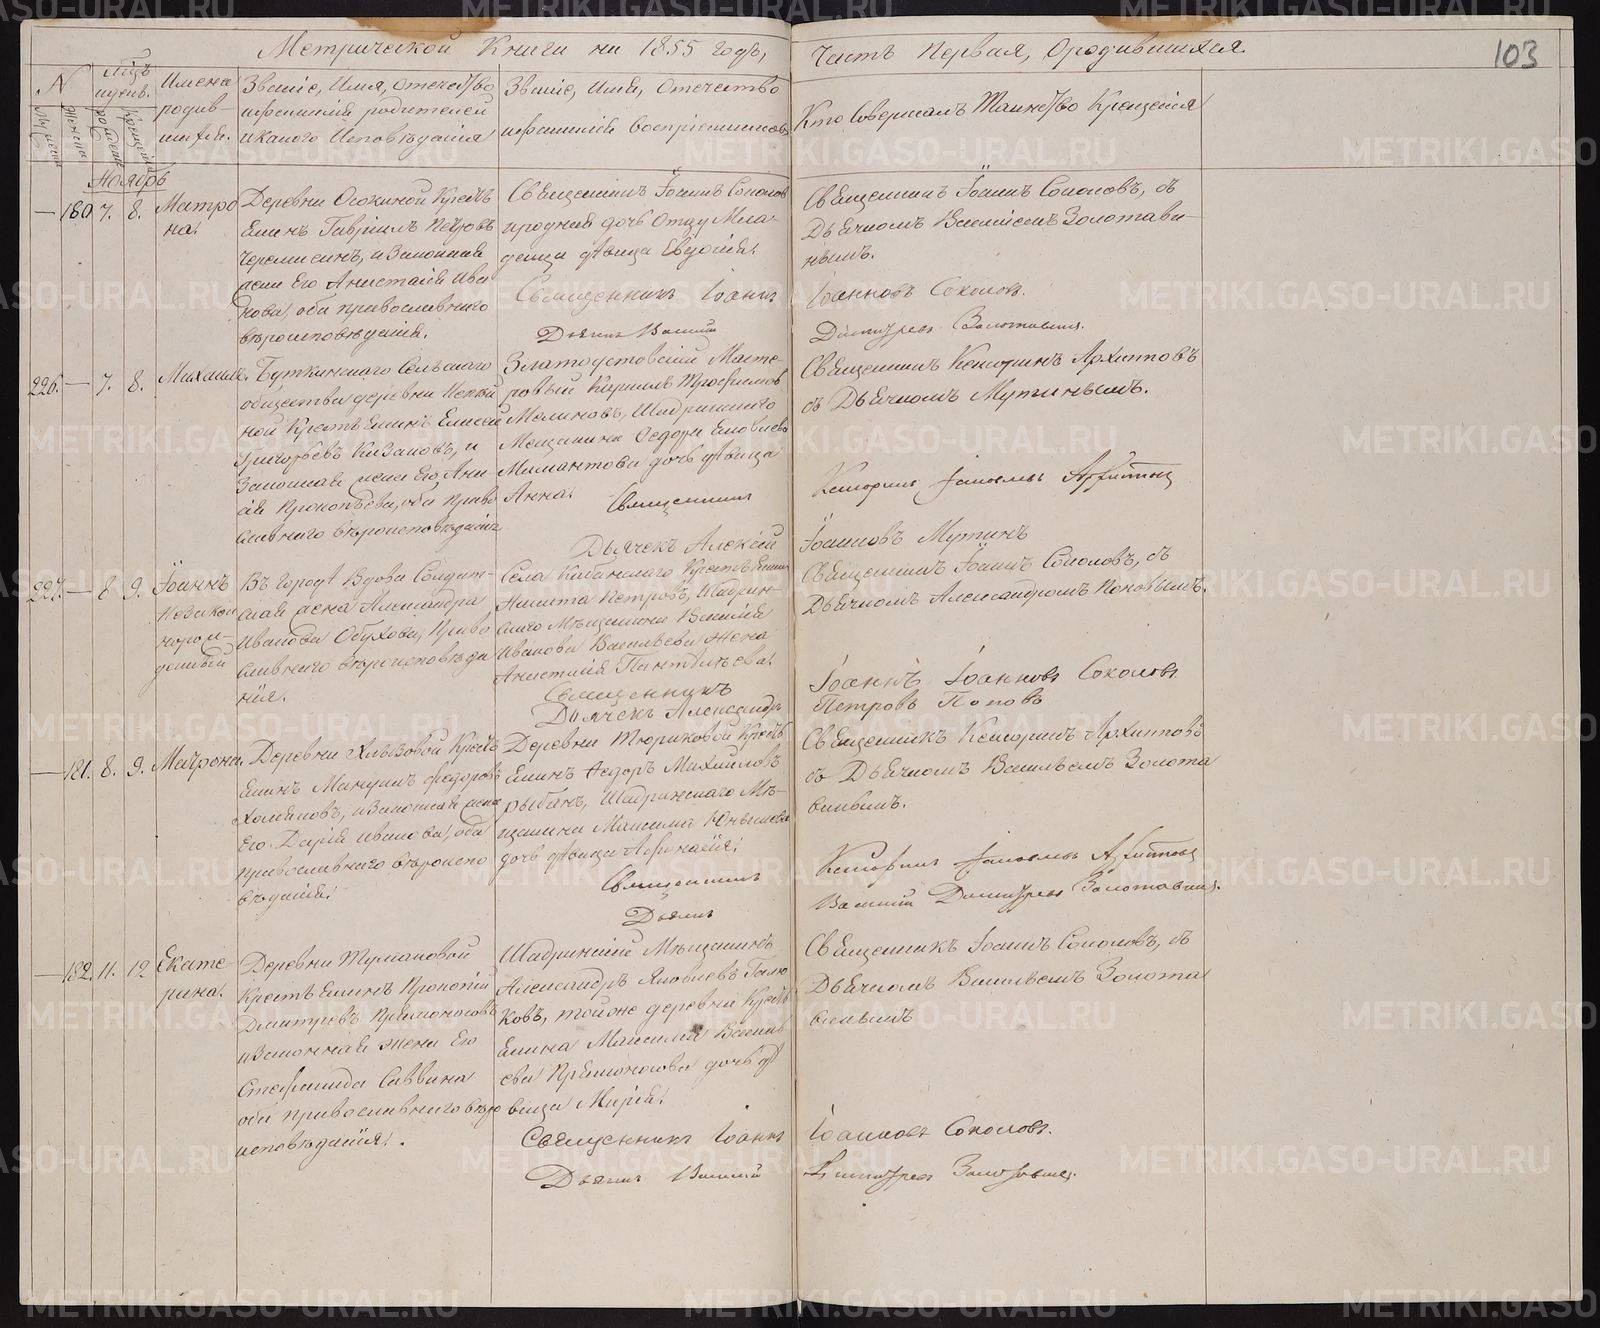 Метрической Книги на 1855 годъ,
Часть Первая, О родившихся.
103
N
Имена родив-
шихся.
Званіе, Имя, Отечество
и фамилія родителей
и какого Исповѣданія
Званіе, Имя, Отечество
и фамилія воспріемниковъ
Кто Совершалъ Таинство Крещенія
Ноябрь
— 180. 7. 8.
Матро
на.
Деревни Осокиной Кресть
янинъ Гавріилъ Петровъ
Черемисинъ, и Законная
жена Его Анастасія Ива
нова, оба православнаго
вѣроисповѣданія.
Священникъ Іоаннъ Соколовъ
и родная дочь Отцу Мла-
денца дѣвица Евдокія.
Священникъ Іоаннъ
Дьячекъ Василій
Священникъ Іоаннъ Соколовъ, съ
Дьячкомъ Василіемъ Золотави-
нымъ.
Іоанновъ Соколовъ.
Димитріевъ Золотавинъ.
226. — 7. 8.
Михаилъ.
Буткинскаго Сельскаго
общества деревни
ной Крестьянинъ Елисей
Григорьевъ Казаковъ, и
Законная жена Его, Ани
сія Прокопьева, оба Право
славнаго вѣроисповѣданія
Златоустовскій Масте-
ровый Кирилъ Трофимовъ
Малиновъ, Шадринскаго
Мещанина Ѳедора Яковлева
Мамонтова дочь дѣвица
Анна.
Священникъ
Дьячекъ Алексій
Священникъ Кенсоринъ Архиповъ
съ Дьячкомъ Мутинымъ.
Кенсоринъ Архиповъ
Іоанновъ Мутинъ
227. — 8 9.
Іоаннъ
Незакон
норож-
денный
Въ городѣ Вдова Солдат-
ская жена Александра
Иванова Обухова, Право
славнаго вѣроисповѣда
нія.
Села Кабанскаго Крестьянинъ
Никита Петровъ, Шадрин-
скаго Мѣщанина Василія
Иванова Васильева жена
Анастасія Пантелѣева.
Священникъ
Дьячекъ Александръ
Священникъ Іоаннъ Соколовъ, съ
Дьячкомъ Александромъ Поповымъ.
Іоаннъ Іоанновъ Соколовъ
Петровъ Поповъ
— 181. 8. 9.
Матрона.
Деревни Хлызовой Кресть
янинъ Мануилъ Ѳедоровъ
и Законная жена
Его Дарія Иванова, оба
православнаго вѣроиспо
вѣданія.
Деревни Тюриковой Кресть
янинъ Ѳедоръ Михайловъ
Рыбинъ, Шадринскаго Мѣ-
щанина Максима
дочь дѣвица Афанасія.
Священникъ
Дьячекъ
Священникъ Кенсоринъ Архиповъ
съ Дьячкомъ Васильемъ Золота
винымъ.
Кенсоринъ Архиповъ
Василій Димитріевъ Золотавинъ.
— 182. 11. 12
Екате-
рина.
Деревни Тумановой
Крестьянинъ Прокопій
Дмитріевъ Прямоносовъ
и Законная жена Его
Стефанида Саввина
оба православнаго вѣро
исповѣданія.
Шадринскій Мѣщанинъ
Александръ Яковлевъ
ковъ, тойже деревни Кресть
янина Максима Василь
ева Прямоносова дочь дѣ
вица Марія.
Священникъ Іоаннъ
Дьячекъ Василій
Священникъ Іоаннъ Соколовъ, съ
Дьячкомъ Васильемъ Золота
винымъ
Іоанновъ Соколовъ.
Димитріевъ Золотавинъ.
METRIKI.GASO-URAL.RU